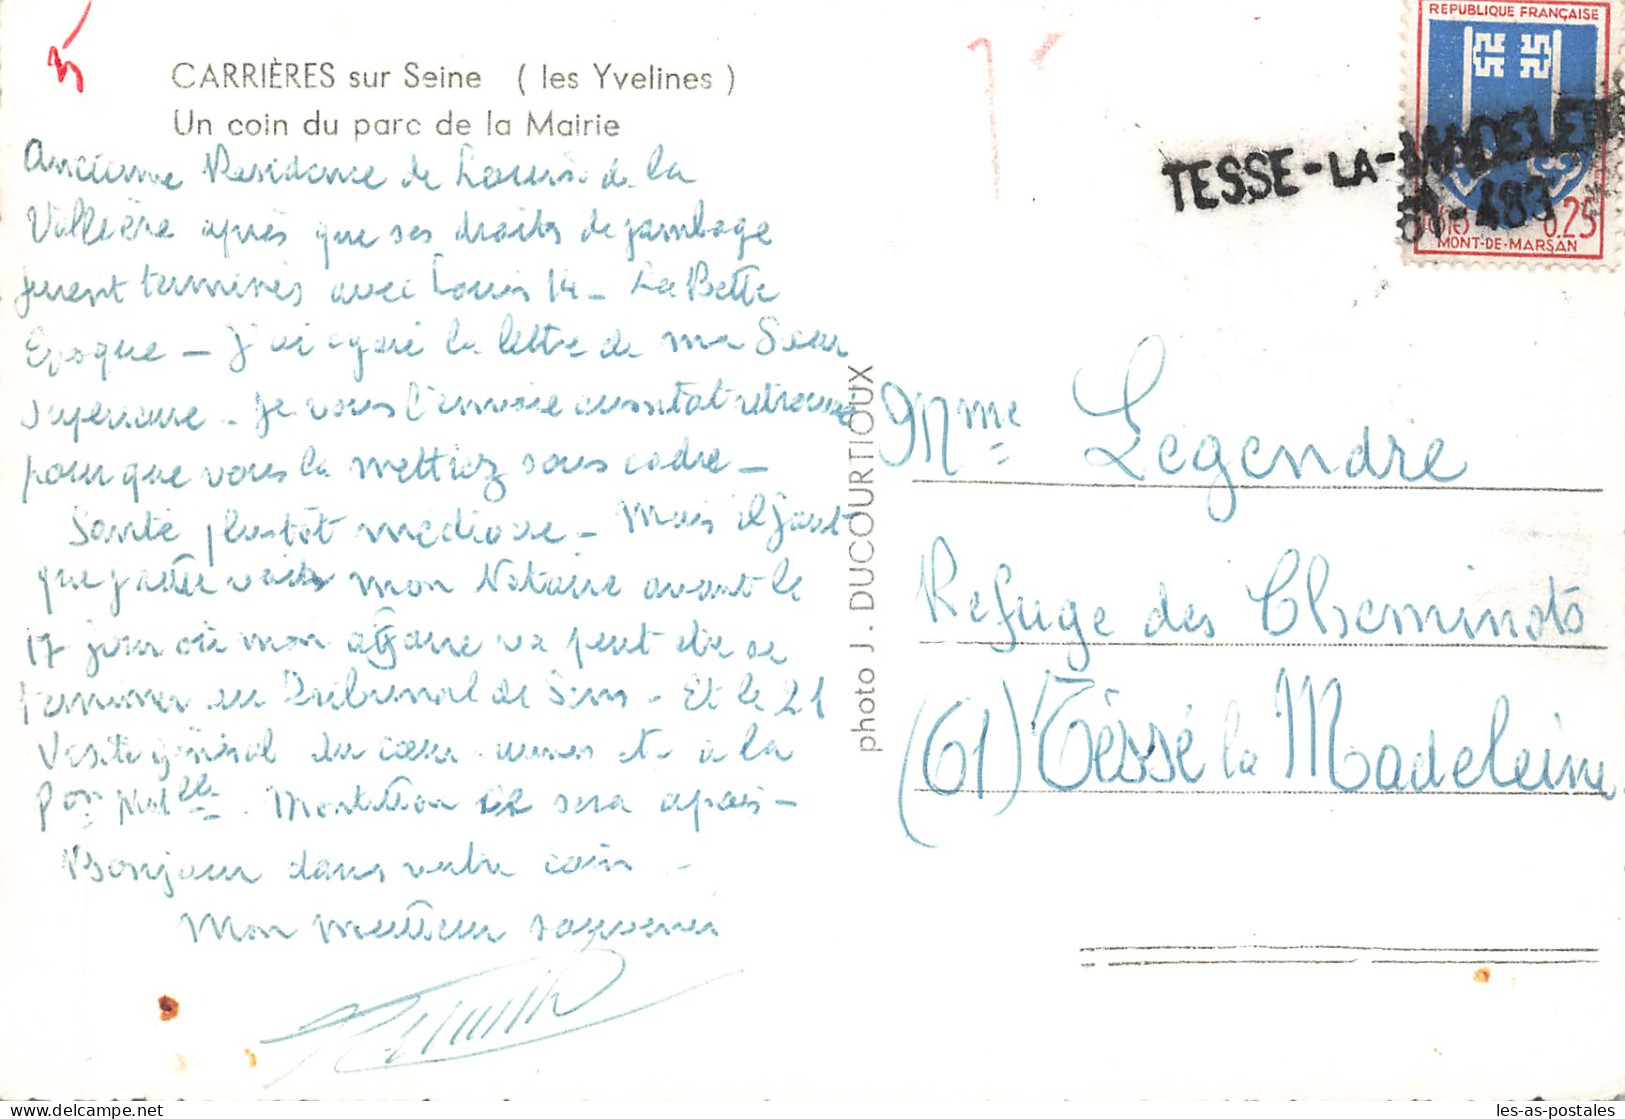 CARRIÈRES sur Seine ( les Yvelines )
Un coin du parc de la Mairie
Ancienne Residence de Louise de la
Vallière après que ses droits de jambage
furent terminés avec Louis 14 - La Belle
Epoque - J'ai égaré la lettre de ma Soeur
Supérieure - Je vous l'envoie aussitôt retrouvée
pour que vous la mettiez sous cadre -
Santé plustôt médiocre - Mais il faut
que j'aille voir mon Notaire avant le
17 jour où mon affaire va peut etre se
terminer au Tribunal de Sens - Et le 21
Visite général du coeur - urines etc à la
Pon Matelle. Montation sera après -
Bonjour dans votre coin -
Mon meilleur souvenir
photo J. DUCOURTIOUX
REPUBLIQUE FRANÇAISE
TESSE-LA-MADELEINE
61-483
POSTES 0,25
MONT-DE-MARSAN
Mme Legendre
Refuge des Cheminots
(61) Téssé la Madeleine
les-as-postales